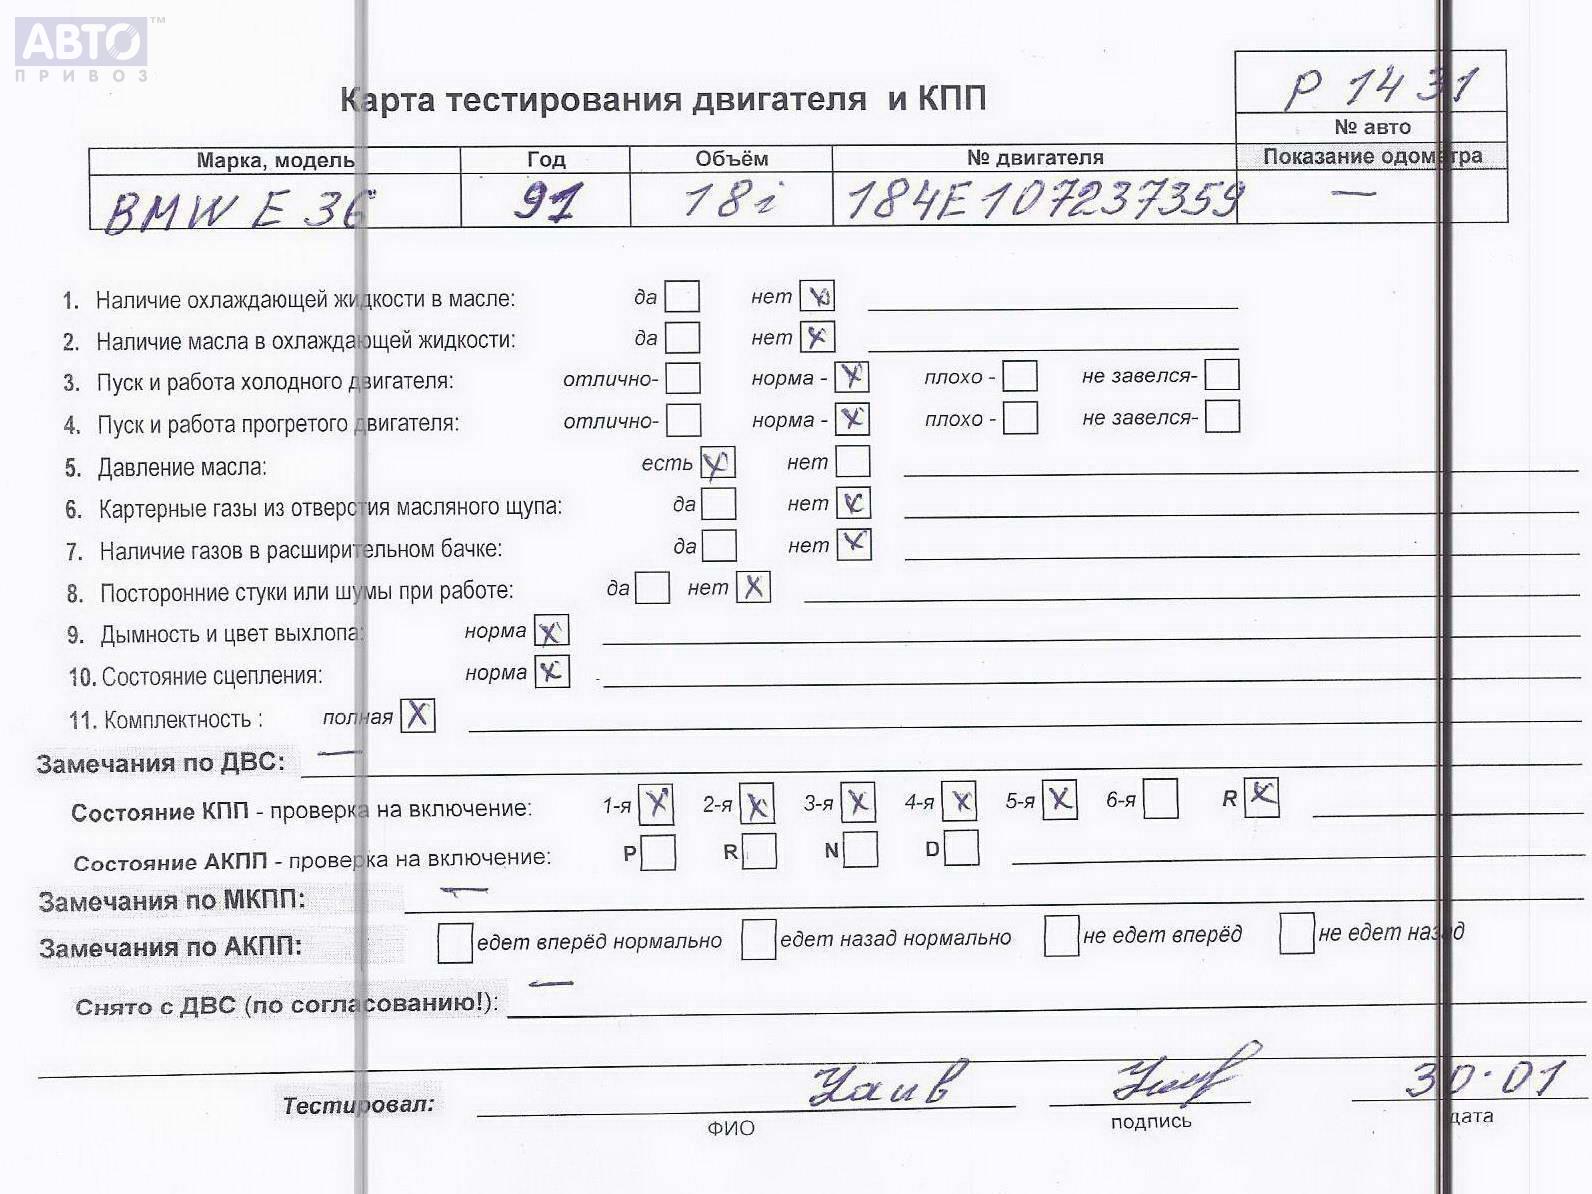 АВТО™
ПРИВОЗ
P 1431
Карта тестирования двигателя и КПП
№ авто
Марка, модель Год Объём № двигателя Показание одометра
BMW E 36 91 18i 184E107237359 —
1. Наличие охлаждающей жидкости в масле: да нет X
2. Наличие масла в охлаждающей жидкости: да нет X
3. Пуск и работа холодного двигателя: отлично- норма - X плохо - не завелся-
4. Пуск и работа прогретого двигателя: отлично- норма - X плохо - не завелся-
5. Давление масла: есть X нет
6. Картерные газы из отверстия масляного щупа: да нет X
7. Наличие газов в расширительном бачке: да нет X
8. Посторонние стуки или шумы при работе: да нет X
9. Дымность и цвет выхлопа: норма X
10. Состояние сцепления: норма X
11. Комплектность : полная X
Замечания по ДВС: —
Состояние КПП - проверка на включение: 1-я X 2-я X 3-я X 4-я X 5-я X 6-я R X
Состояние АКПП - проверка на включение: P R N D
Замечания по МКПП: —
Замечания по АКПП: едет вперёд нормально едет назад нормально не едет вперёд не едет назад
Снято с ДВС (по согласованию!): —
Тестировал: 30.01
ФИО подпись дата